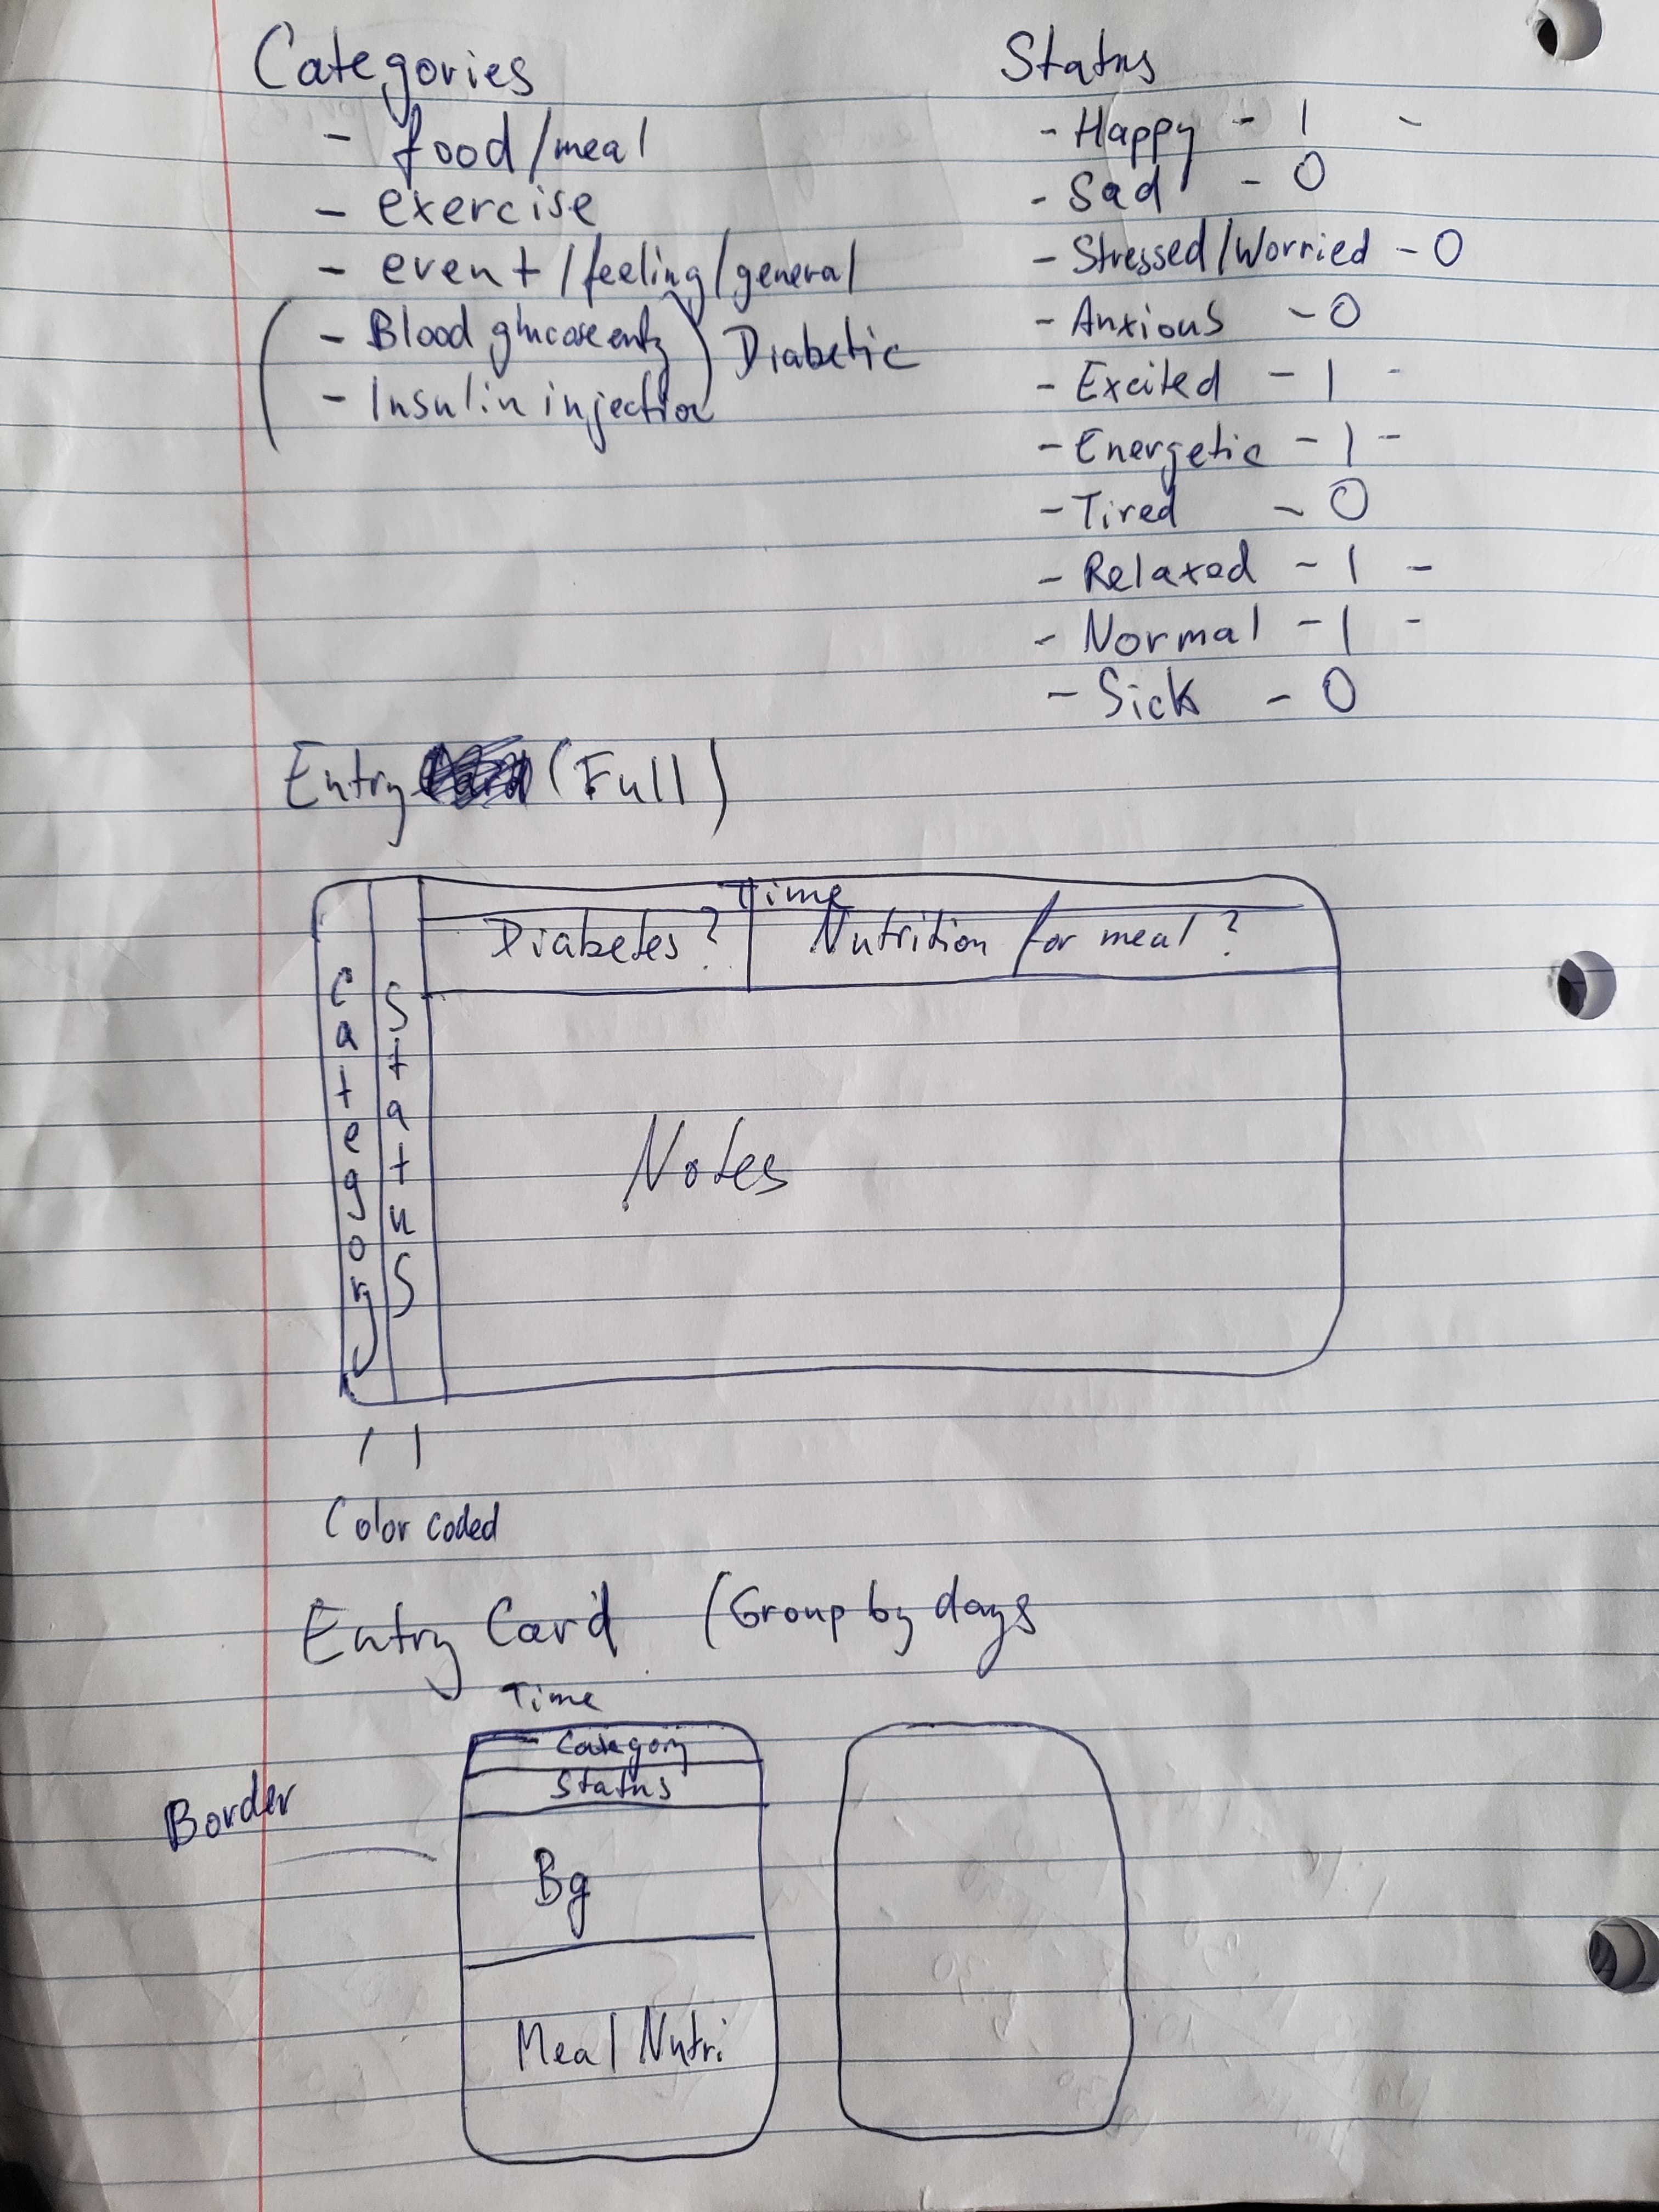 Categories
- food/meal
- exercise
- event/feeling/general
( - Blood glucose entry ) Diabetic
- Insulin injection
Status
- Happy - 1 -
- Sad - 0
- Stressed/Worried - 0
- Anxious - 0
- Excited - 1 -
- Energetic - 1 -
- Tired - 0
- Relaxed - 1 -
- Normal - 1 -
- Sick - 0
Entry (Full)
Time
Diabetes? Nutrition for meal?
Category
Status
Notes
Color coded
Entry Card (Group by days
Time
Category
Status
Border
Bg
Meal Nutri